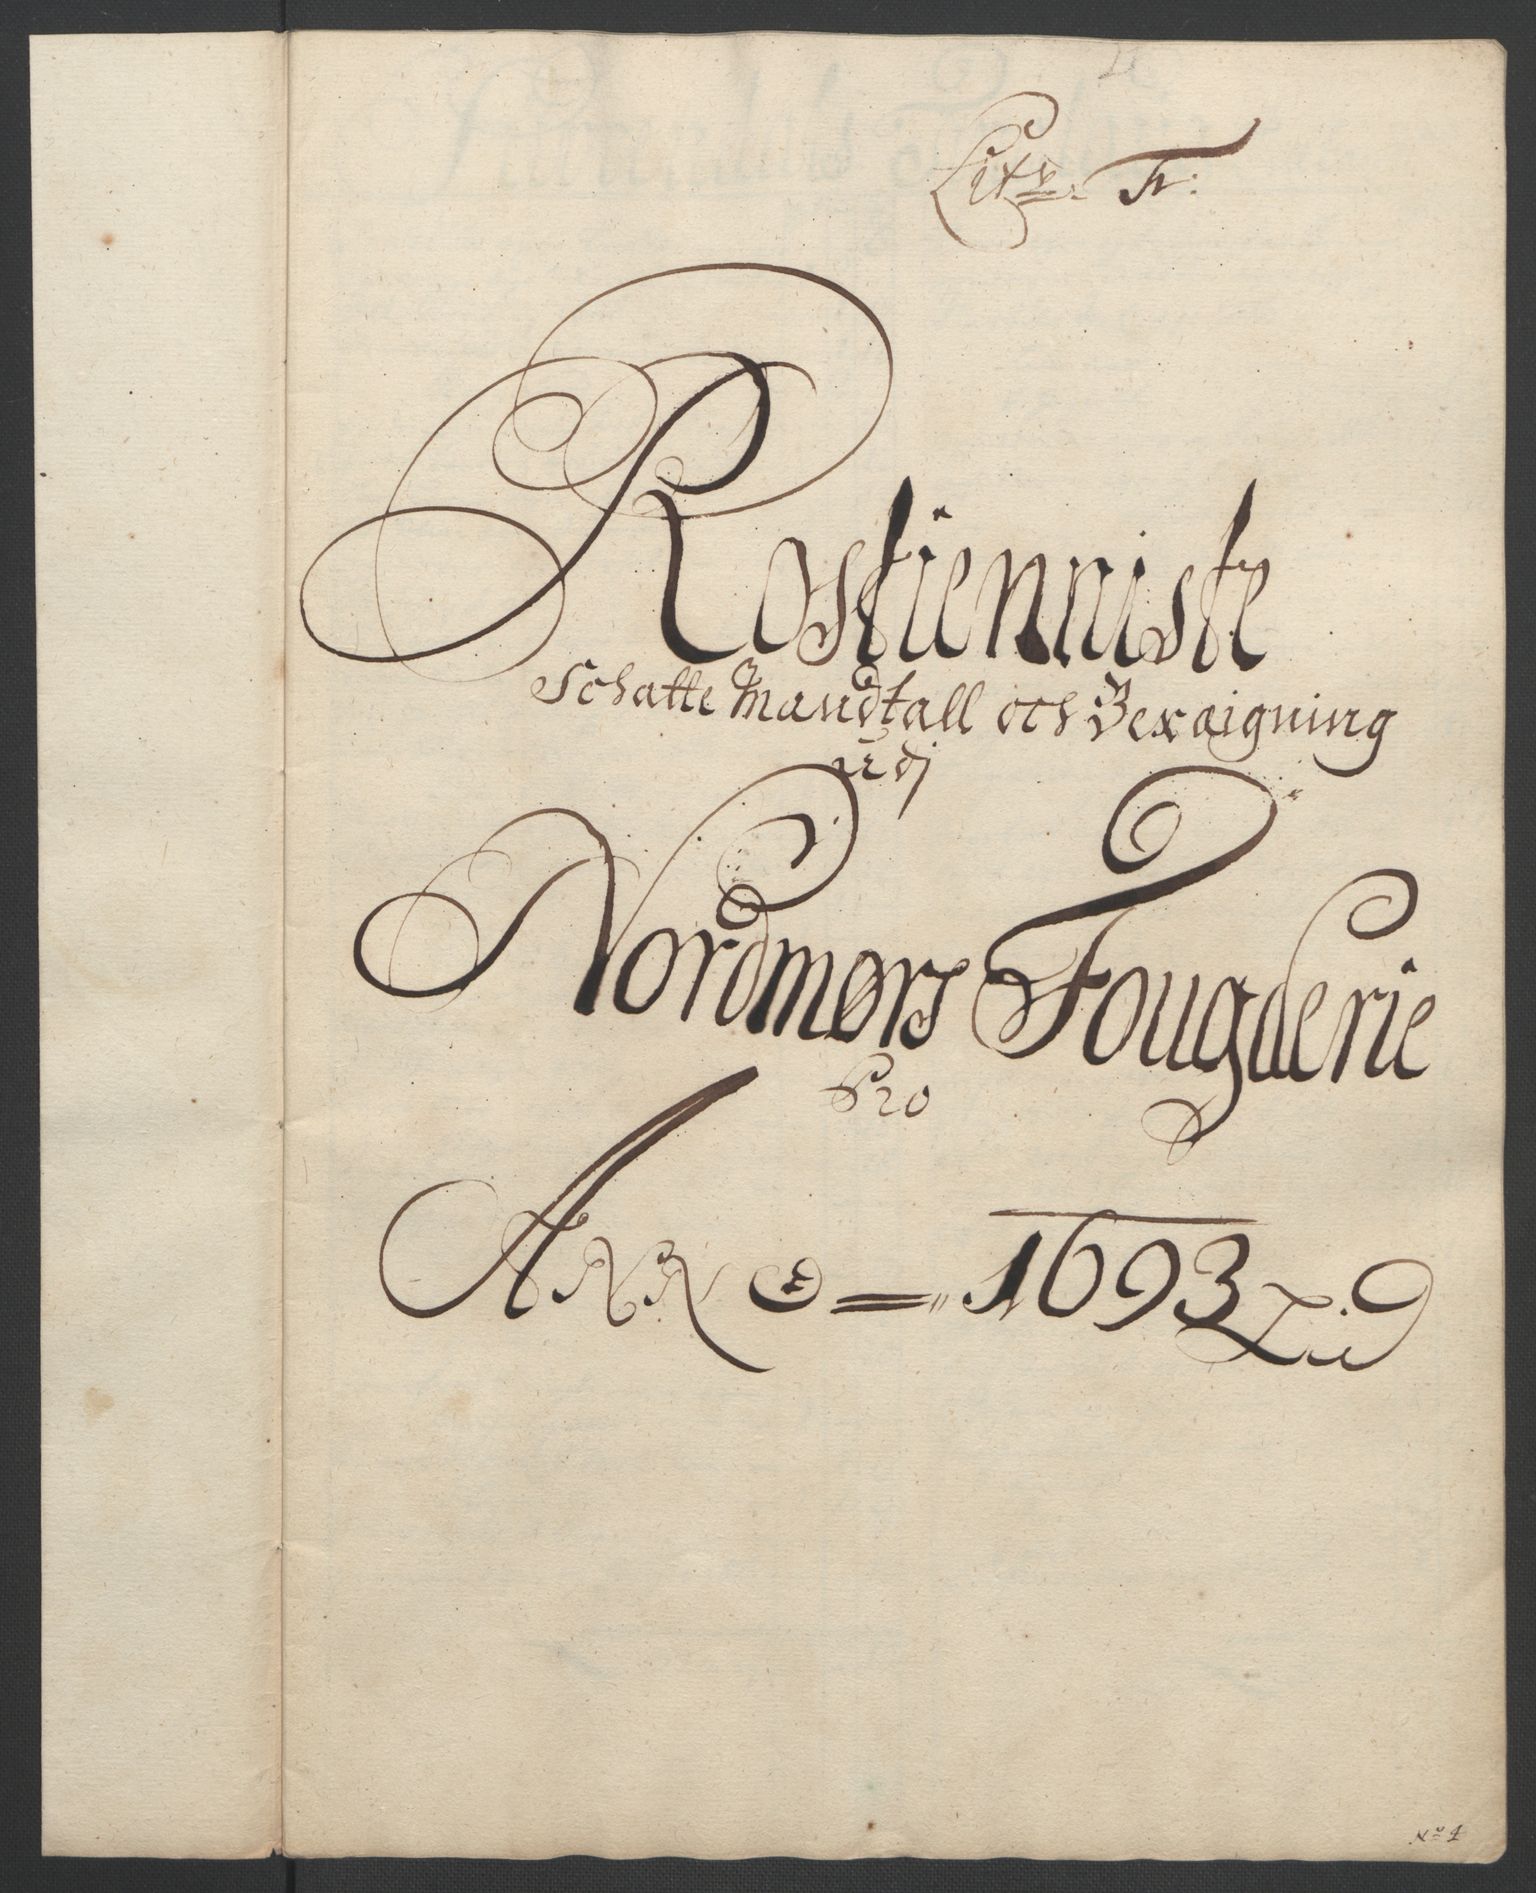 Litr: F:
Rostienniste
Schatte Mandtall och Bereigning
udj
Nordmørs Fougderie
Pro
ANNO = 1693
No 1